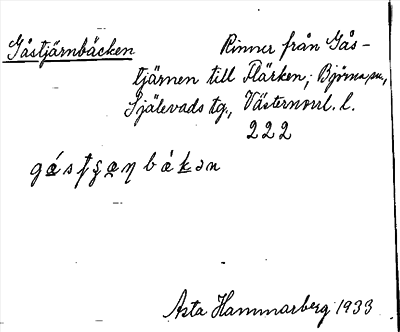 Gåstjärnbäcken
Rinner från Gås-
tjärnen till Flärken, Björna sn,
Själevads tg., Västernorrl. l.
222
Asta Hammarberg 1933